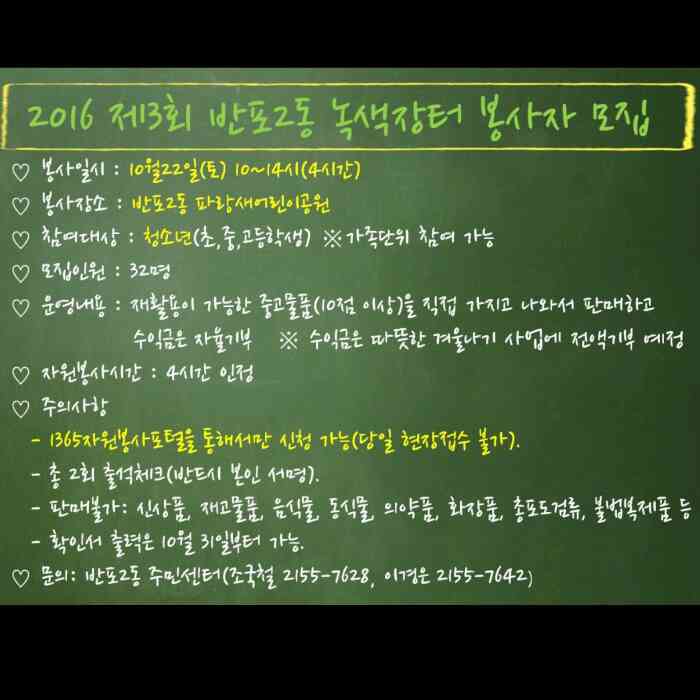 2016 제3회 반포2동 녹색장터 봉사자 모집
♡ 봉사일시 : 10월22일(토) 10~14시(4시간)
♡ 봉사장소 : 반포2동 파랑새어린이공원
♡ 참여대상 : 청소년(초,중,고등학생) ※가족단위 참여 가능
♡ 모집인원 : 32명
♡ 운영내용 : 재활용이 가능한 중고물품(10점 이상)을 직접 가지고 나와서 판매하고
수익금은 자율기부 ※ 수익금은 따뜻한 겨울나기 사업에 전액기부 예정
♡ 자원봉사시간 : 4시간 인정
♡ 주의사항
- 1365자원봉사포털을 통해서만 신청 가능(당일 현장접수 불가).
- 총 2회 출석체크(반드시 본인 서명).
- 판매불가: 신상품, 재고물품, 음식물, 동식물, 의약품, 화장품, 총포도검류, 불법복제품 등
- 확인서 출력은 10월 31일부터 가능.
♡ 문의: 반포2동 주민센터(조국철 2155-7628, 이경은 2155-7642)